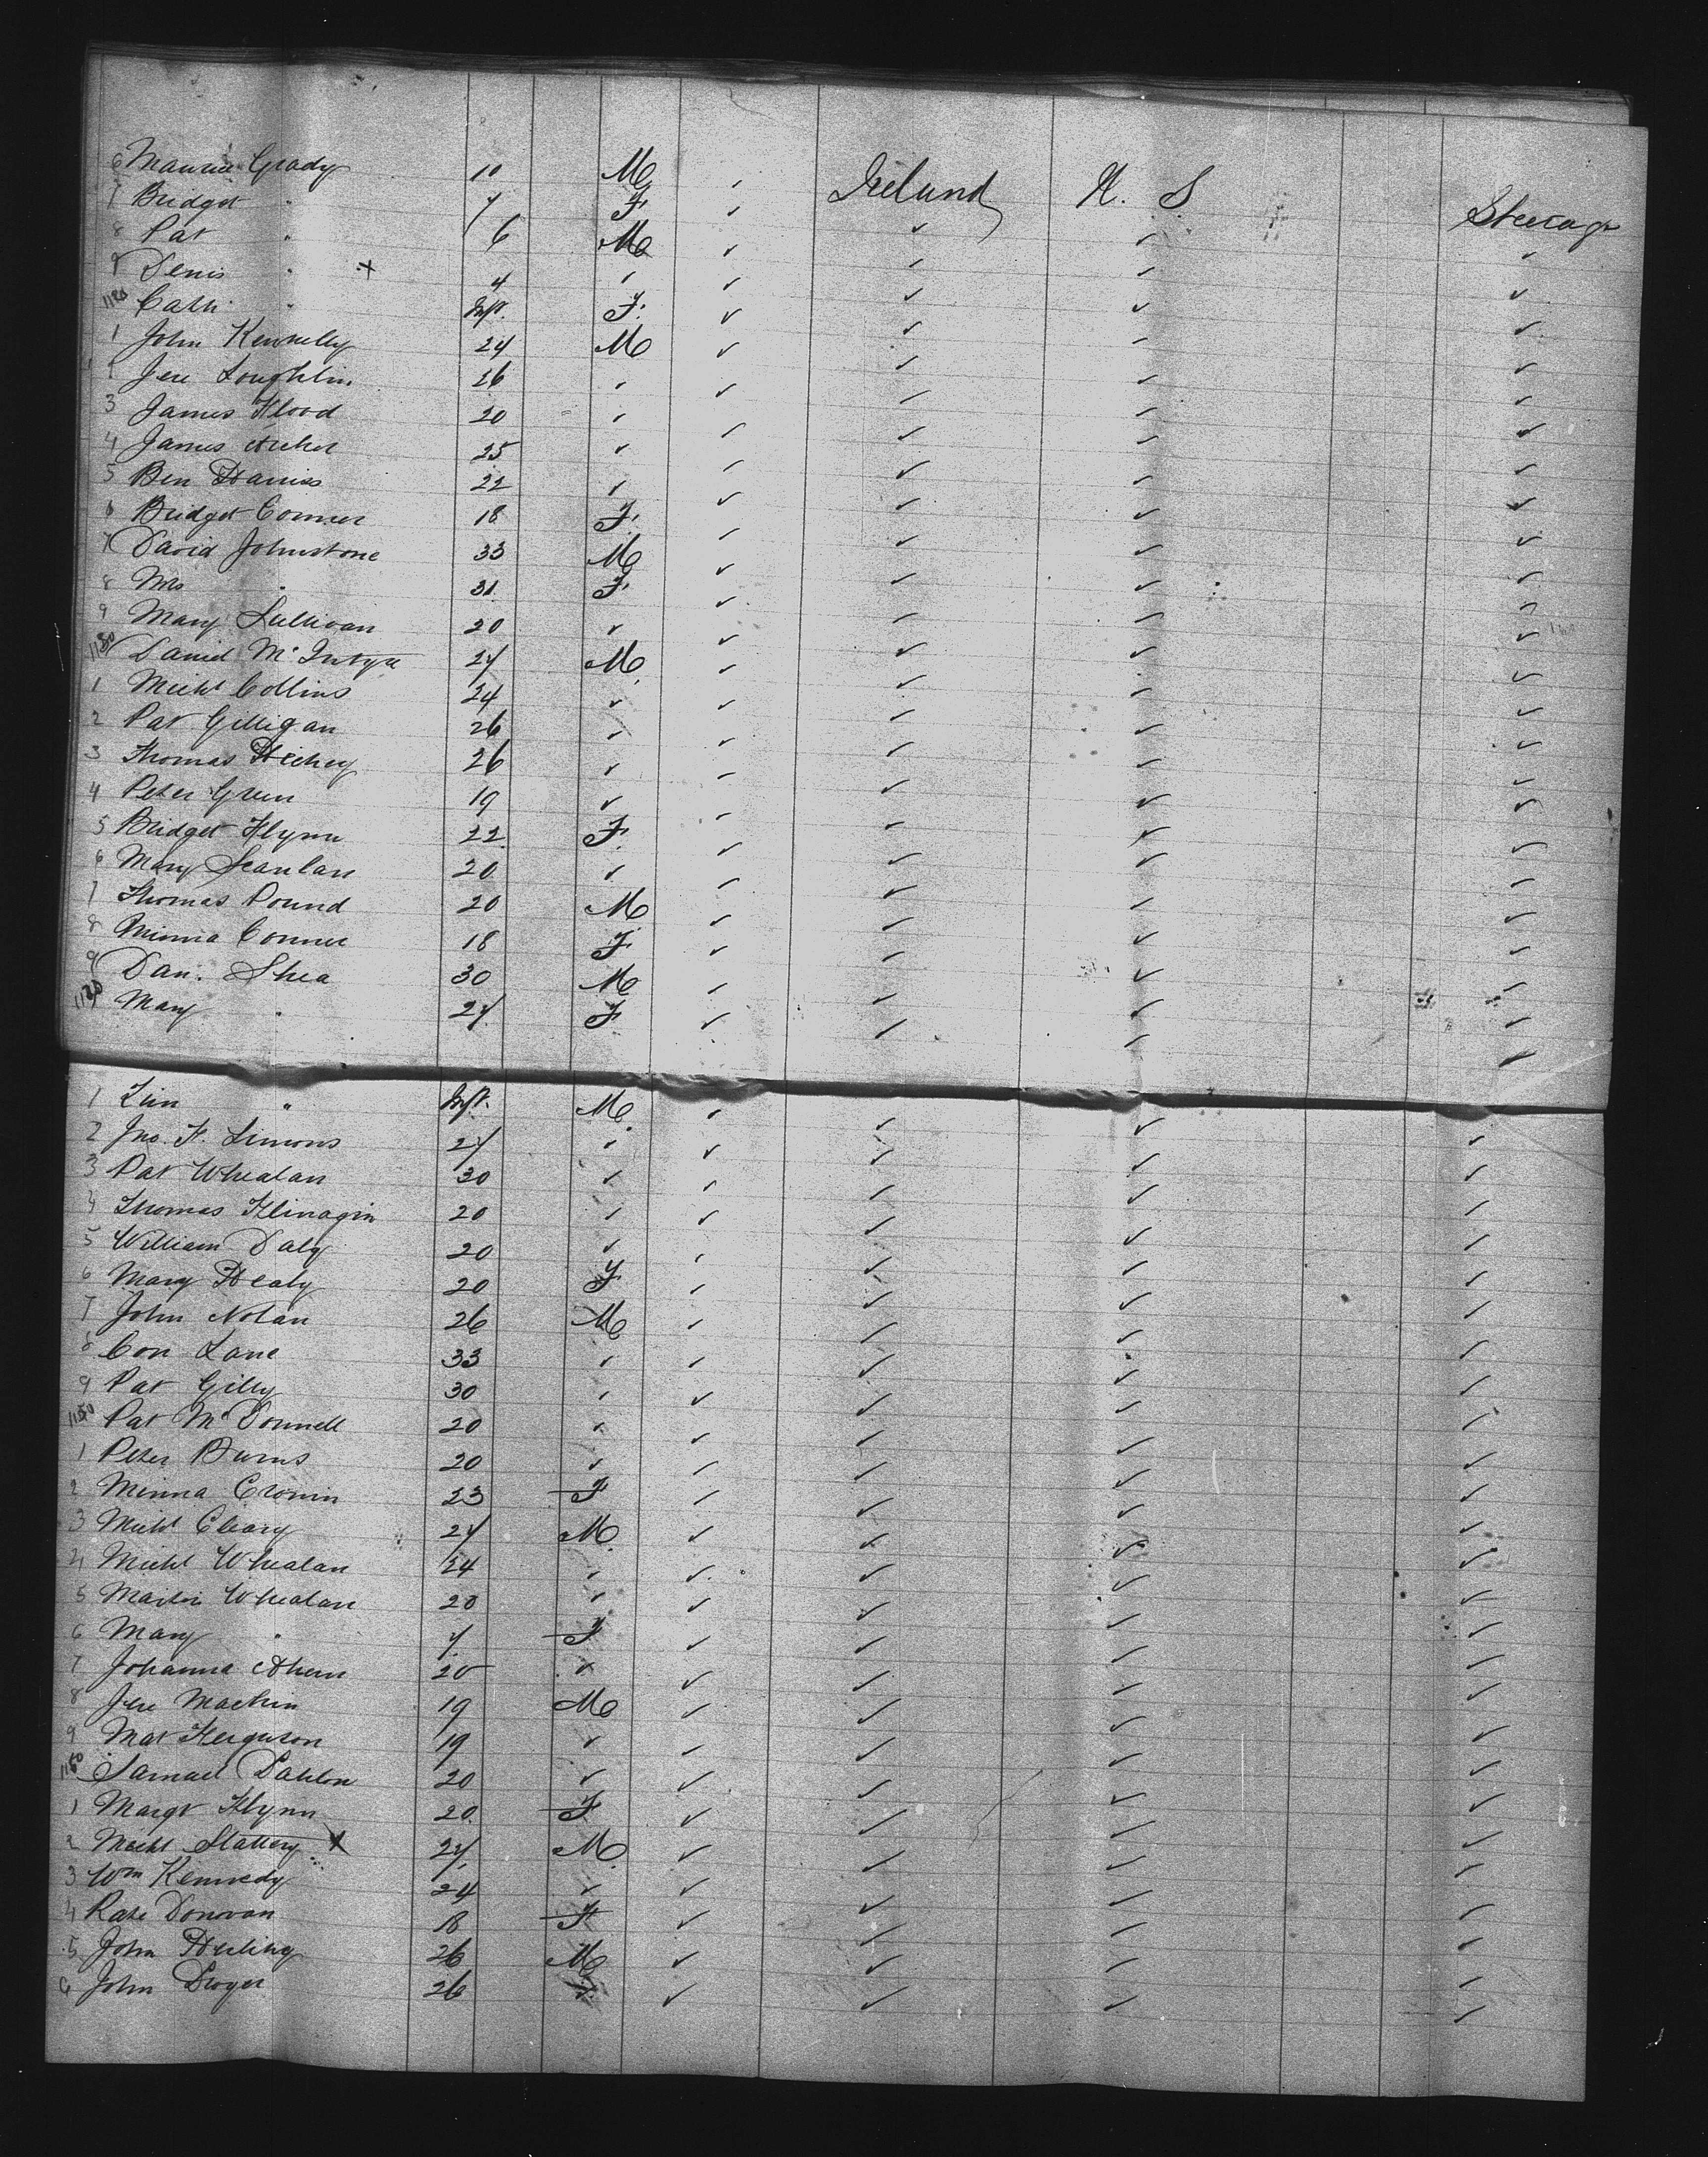 6 Maurice Grady 10 M ✓ Ireland U. S Steerage
7 Bridget " 7 F ✓ ✓ ✓ ✓
8 Pat " 6 M ✓ ✓ ✓ ✓
9 Denis " + 4 ✓ ✓ ✓ ✓ ✓
Cath " Inft. F. ✓ ✓ ✓ ✓
1 John Kennelly 24 M ✓ ✓ ✓ ✓
2 Jere Loughlin 26 ✓ ✓ ✓ ✓ ✓
3 James Flood 20 ✓ ✓ ✓ ✓ ✓
4 James Archer 25 ✓ ✓ ✓ ✓ ✓
5 Ben Harris 22 ✓ ✓ ✓ ✓ ✓
6 Bridget Conner 18 F. ✓ ✓ ✓ ✓
7 David Johnstone 33 M ✓ ✓ ✓ ✓
8 Mrs " 31 F ✓ ✓ ✓ ✓
9 Mary Sullivan 20 ✓ ✓ ✓ ✓ ✓
Daniel McIntyre 27 M ✓ ✓ ✓ ✓
1 Michl Collins 24 ✓ ✓ ✓ ✓ ✓
2 Pat Gilligan 26 ✓ ✓ ✓ ✓ ✓
3 Thomas Hickey 26 ✓ ✓ ✓ ✓ ✓
4 Peter Green 19 ✓ ✓ ✓ ✓ ✓
5 Bridget Flynn 22 F. ✓ ✓ ✓ ✓
6 Mary Scanlan 20 ✓ ✓ ✓ ✓ ✓
7 Thomas Pound 20 M ✓ ✓ ✓ ✓
8 Minnia Conner 18 F ✓ ✓ ✓ ✓
9 Dan. Shea 30 M ✓ ✓ ✓ ✓
Mary " 27 F ✓ ✓ ✓ ✓
1 Tim " Inft. M ✓ ✓ ✓ ✓
2 Jno. F. Simons 27 ✓ ✓ ✓ ✓ ✓
3 Pat Whealan 30 ✓ ✓ ✓ ✓ ✓
4 Thomas Flinagin 20 ✓ ✓ ✓ ✓ ✓
5 William Daly 20 ✓ ✓ ✓ ✓ ✓
6 Mary Healy 20 F ✓ ✓ ✓ ✓
7 John Nolan 26 M ✓ ✓ ✓ ✓
8 Con Lane 33 ✓ ✓ ✓ ✓ ✓
9 Pat Gilly 30 ✓ ✓ ✓ ✓ ✓
Pat McDonnell 20 ✓ ✓ ✓ ✓ ✓
1 Peter Burns 20 ✓ ✓ ✓ ✓ ✓
2 Minna Cronin 23 F ✓ ✓ ✓ ✓
3 Michl Cleary 27 M ✓ ✓ ✓ ✓
4 Michl Whealan 24 ✓ ✓ ✓ ✓ ✓
5 Martin Whealan 20 ✓ ✓ ✓ ✓ ✓
6 Mary " 7 F ✓ ✓ ✓ ✓
7 Johanna Ahern 20 ✓ ✓ ✓ ✓ ✓
8 Jere Machin 19 M ✓ ✓ ✓ ✓
9 Mat Ferguson 19 ✓ ✓ ✓ ✓ ✓
Samuel 20 ✓ ✓ ✓ ✓ ✓
1 Margt Flynn 20 F ✓ ✓ ✓ ✓
2 Michl Slattery X 27 M ✓ ✓ ✓ ✓
3 Wm Kennedy 24 ✓ ✓ ✓ ✓ ✓
4 Kate Donovan 18 F ✓ ✓ ✓ ✓
5 John 26 M ✓ ✓ ✓ ✓
6 John Dwyer 26 ✓ ✓ ✓ ✓